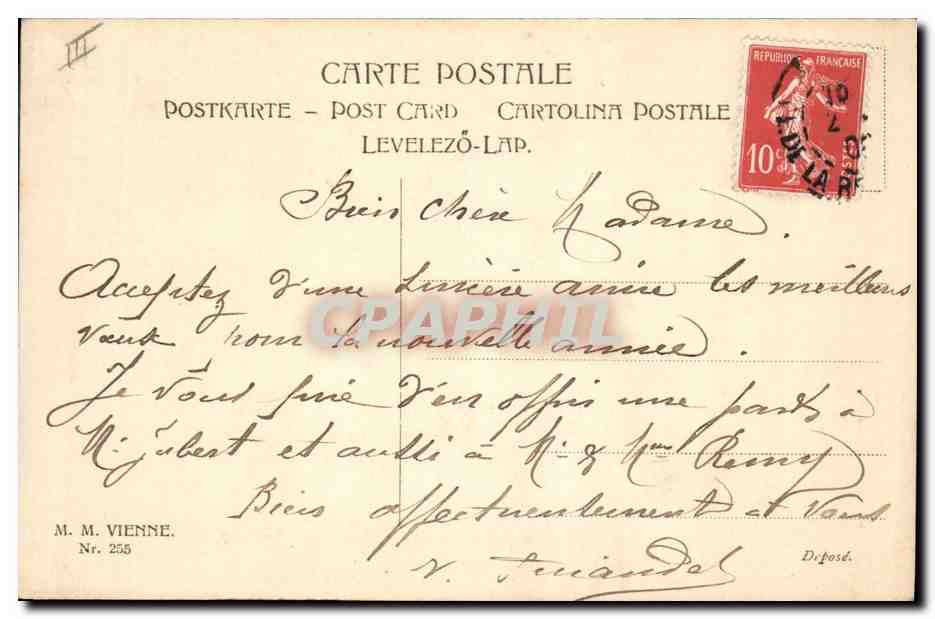 III
CARTE POSTALE
POSTKARTE – POST CARD CARTOLINA POSTALE
LEVELEZŐ-LAP.
REPUBLIQUE FRANÇAISE
10 c
POSTES
DE LA RE
Bien chère Madame.
Acceptez d'une sincère amie les meilleurs
vœux pour la nouvelle année.
Je vous prie d'en offrir une part à
M. Jubert et aussi à M. & Mme Remy
Bien affectueusement à vous
CPAPHIL
M. M. VIENNE.
Nr. 255
Déposé.